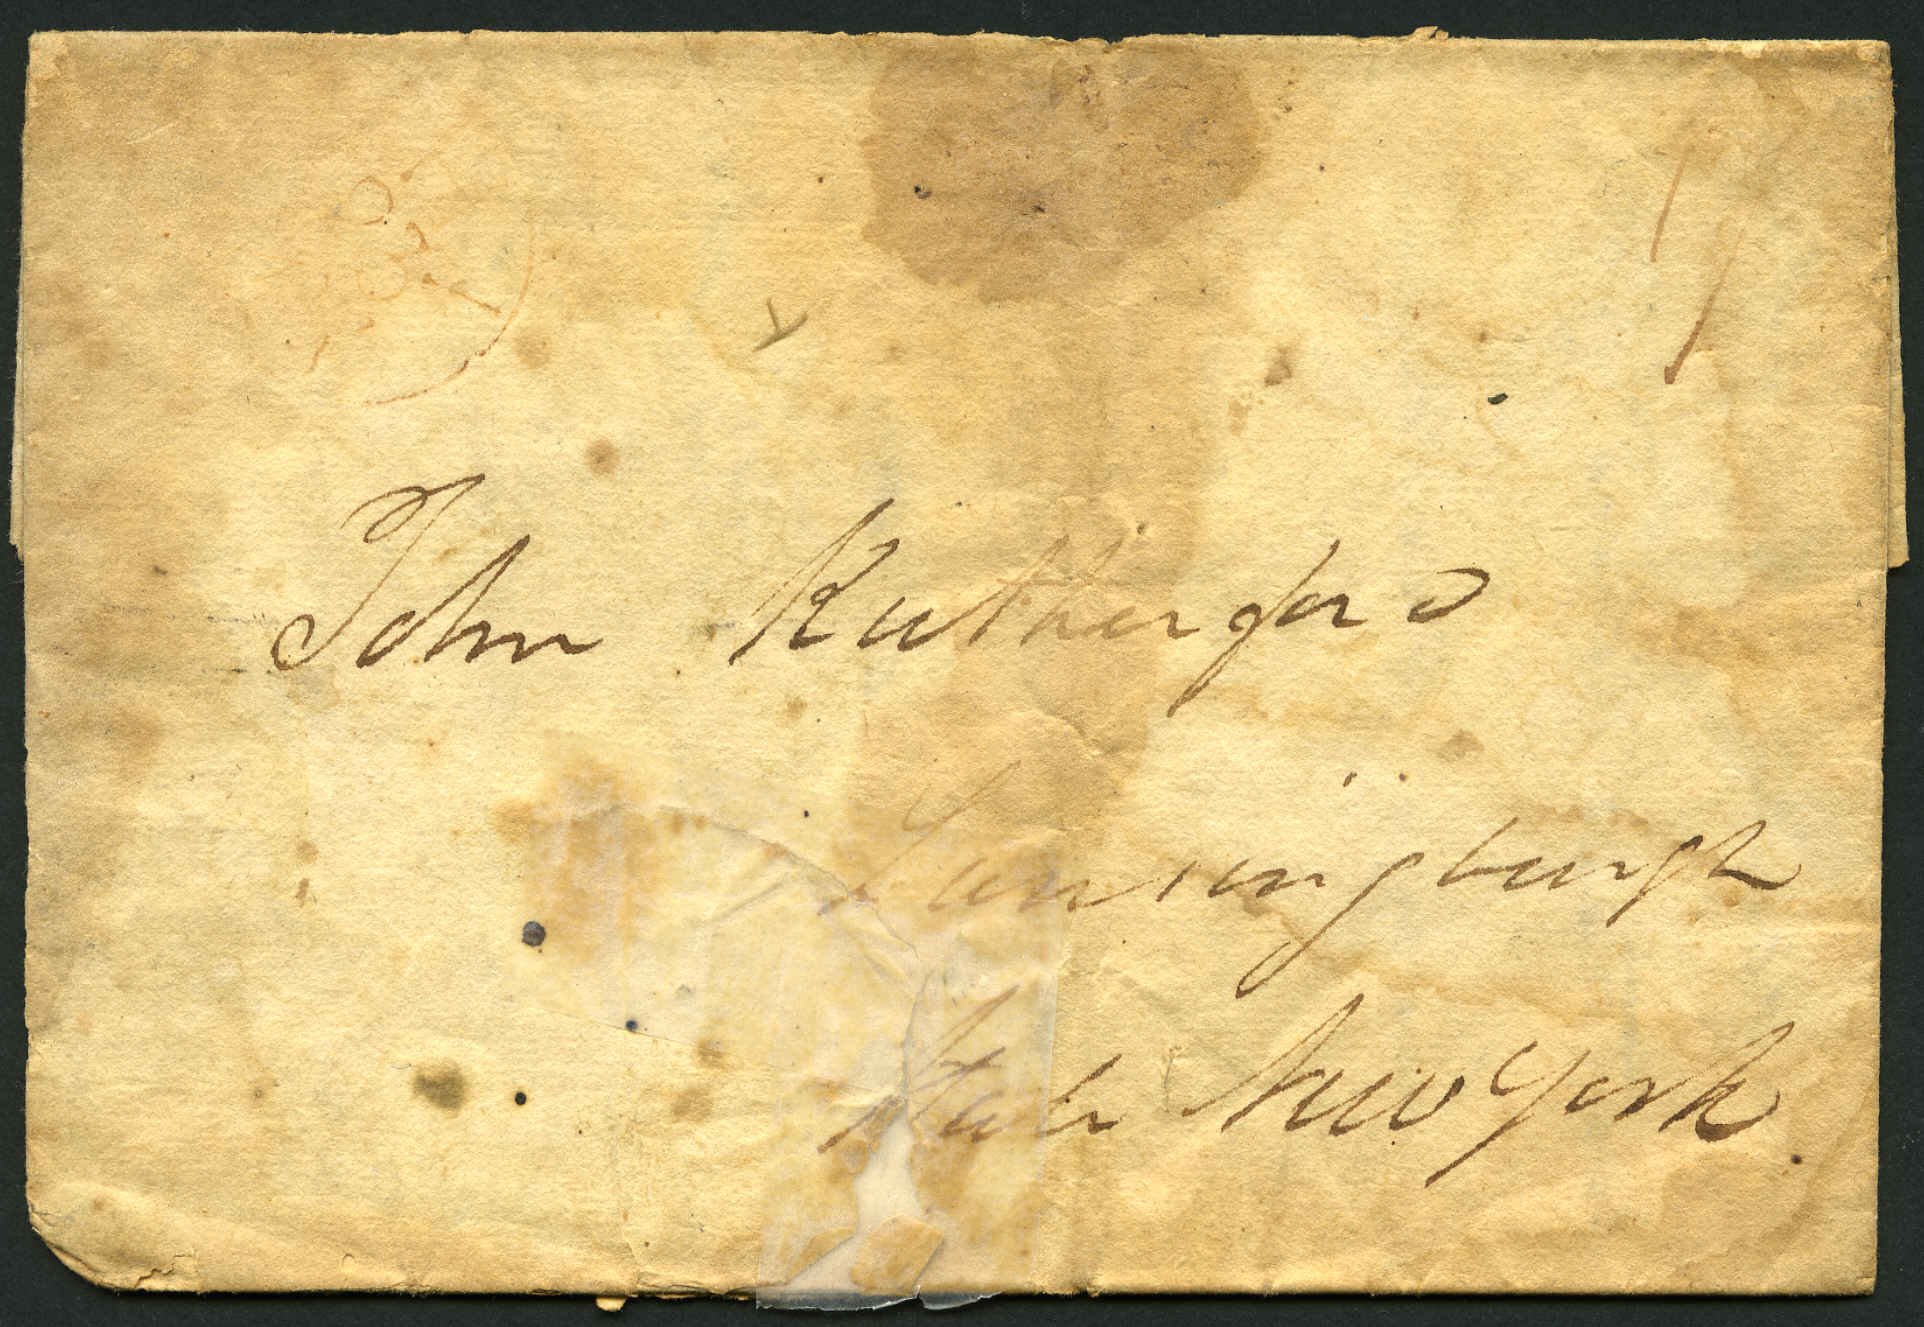 John Rutherford
Lansingburgh
State New York